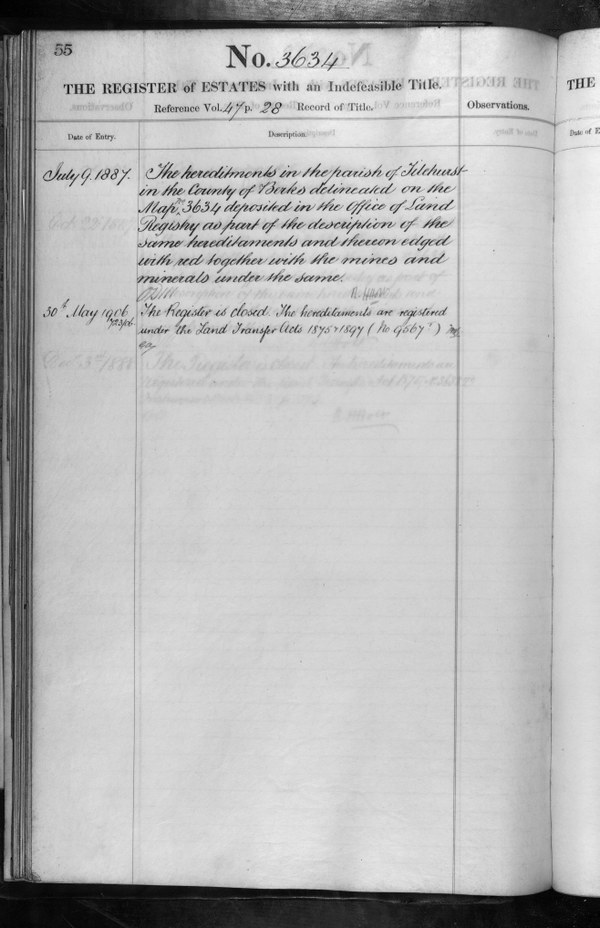 55
No. 3634
THE REGISTER of ESTATES with an Indefeasible Title.
Reference Vol. 47 p. 28 Record of Title.
Observations.
Date of Entry.
Description.
July 9. 1887.
The hereditments in the parish of Tilehurst
in the County of Berks delineated on the
Map, 3634 deposited in the Office of Land
Registry as part of the description of the
same hereditaments and thereon edged
with red together with the mines and
minerals under the same.
30th May 1906
The Register is closed. The hereditaments are registered
under the Land Transfer Acts 1875 & 1897 (No 9567)
THE
Date of E